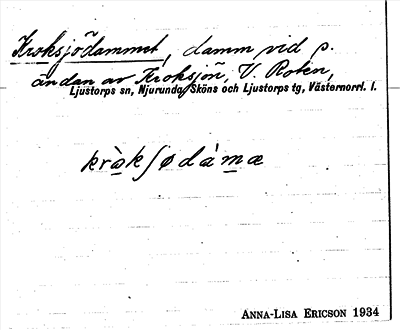 Kroksjödammet, damm vid s.
ändan av Kroksjön, V. Roten,
Ljustorps sn, Njurunda, Sköns och Ljustorps tg, Västernorrl. l.
kròksødàmæ
ANNA-LISA ERICSON 1934